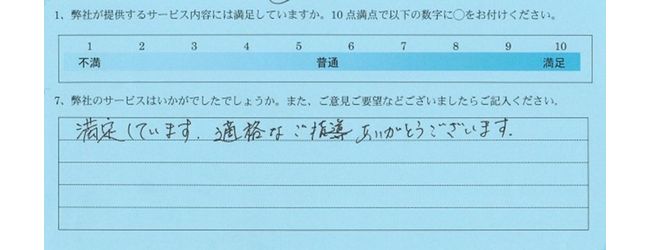 1、弊社が提供するサービス内容には満足していますか。10点満点で以下の数字に○をお付けください。
1 2 3 4 5 6 7 8 9 10
不満 普通 満足
7、弊社のサービスはいかがでしたでしょうか。また、ご意見ご要望などございましたらご記入ください。
満足しています。適格なご指導ありがとうございます。